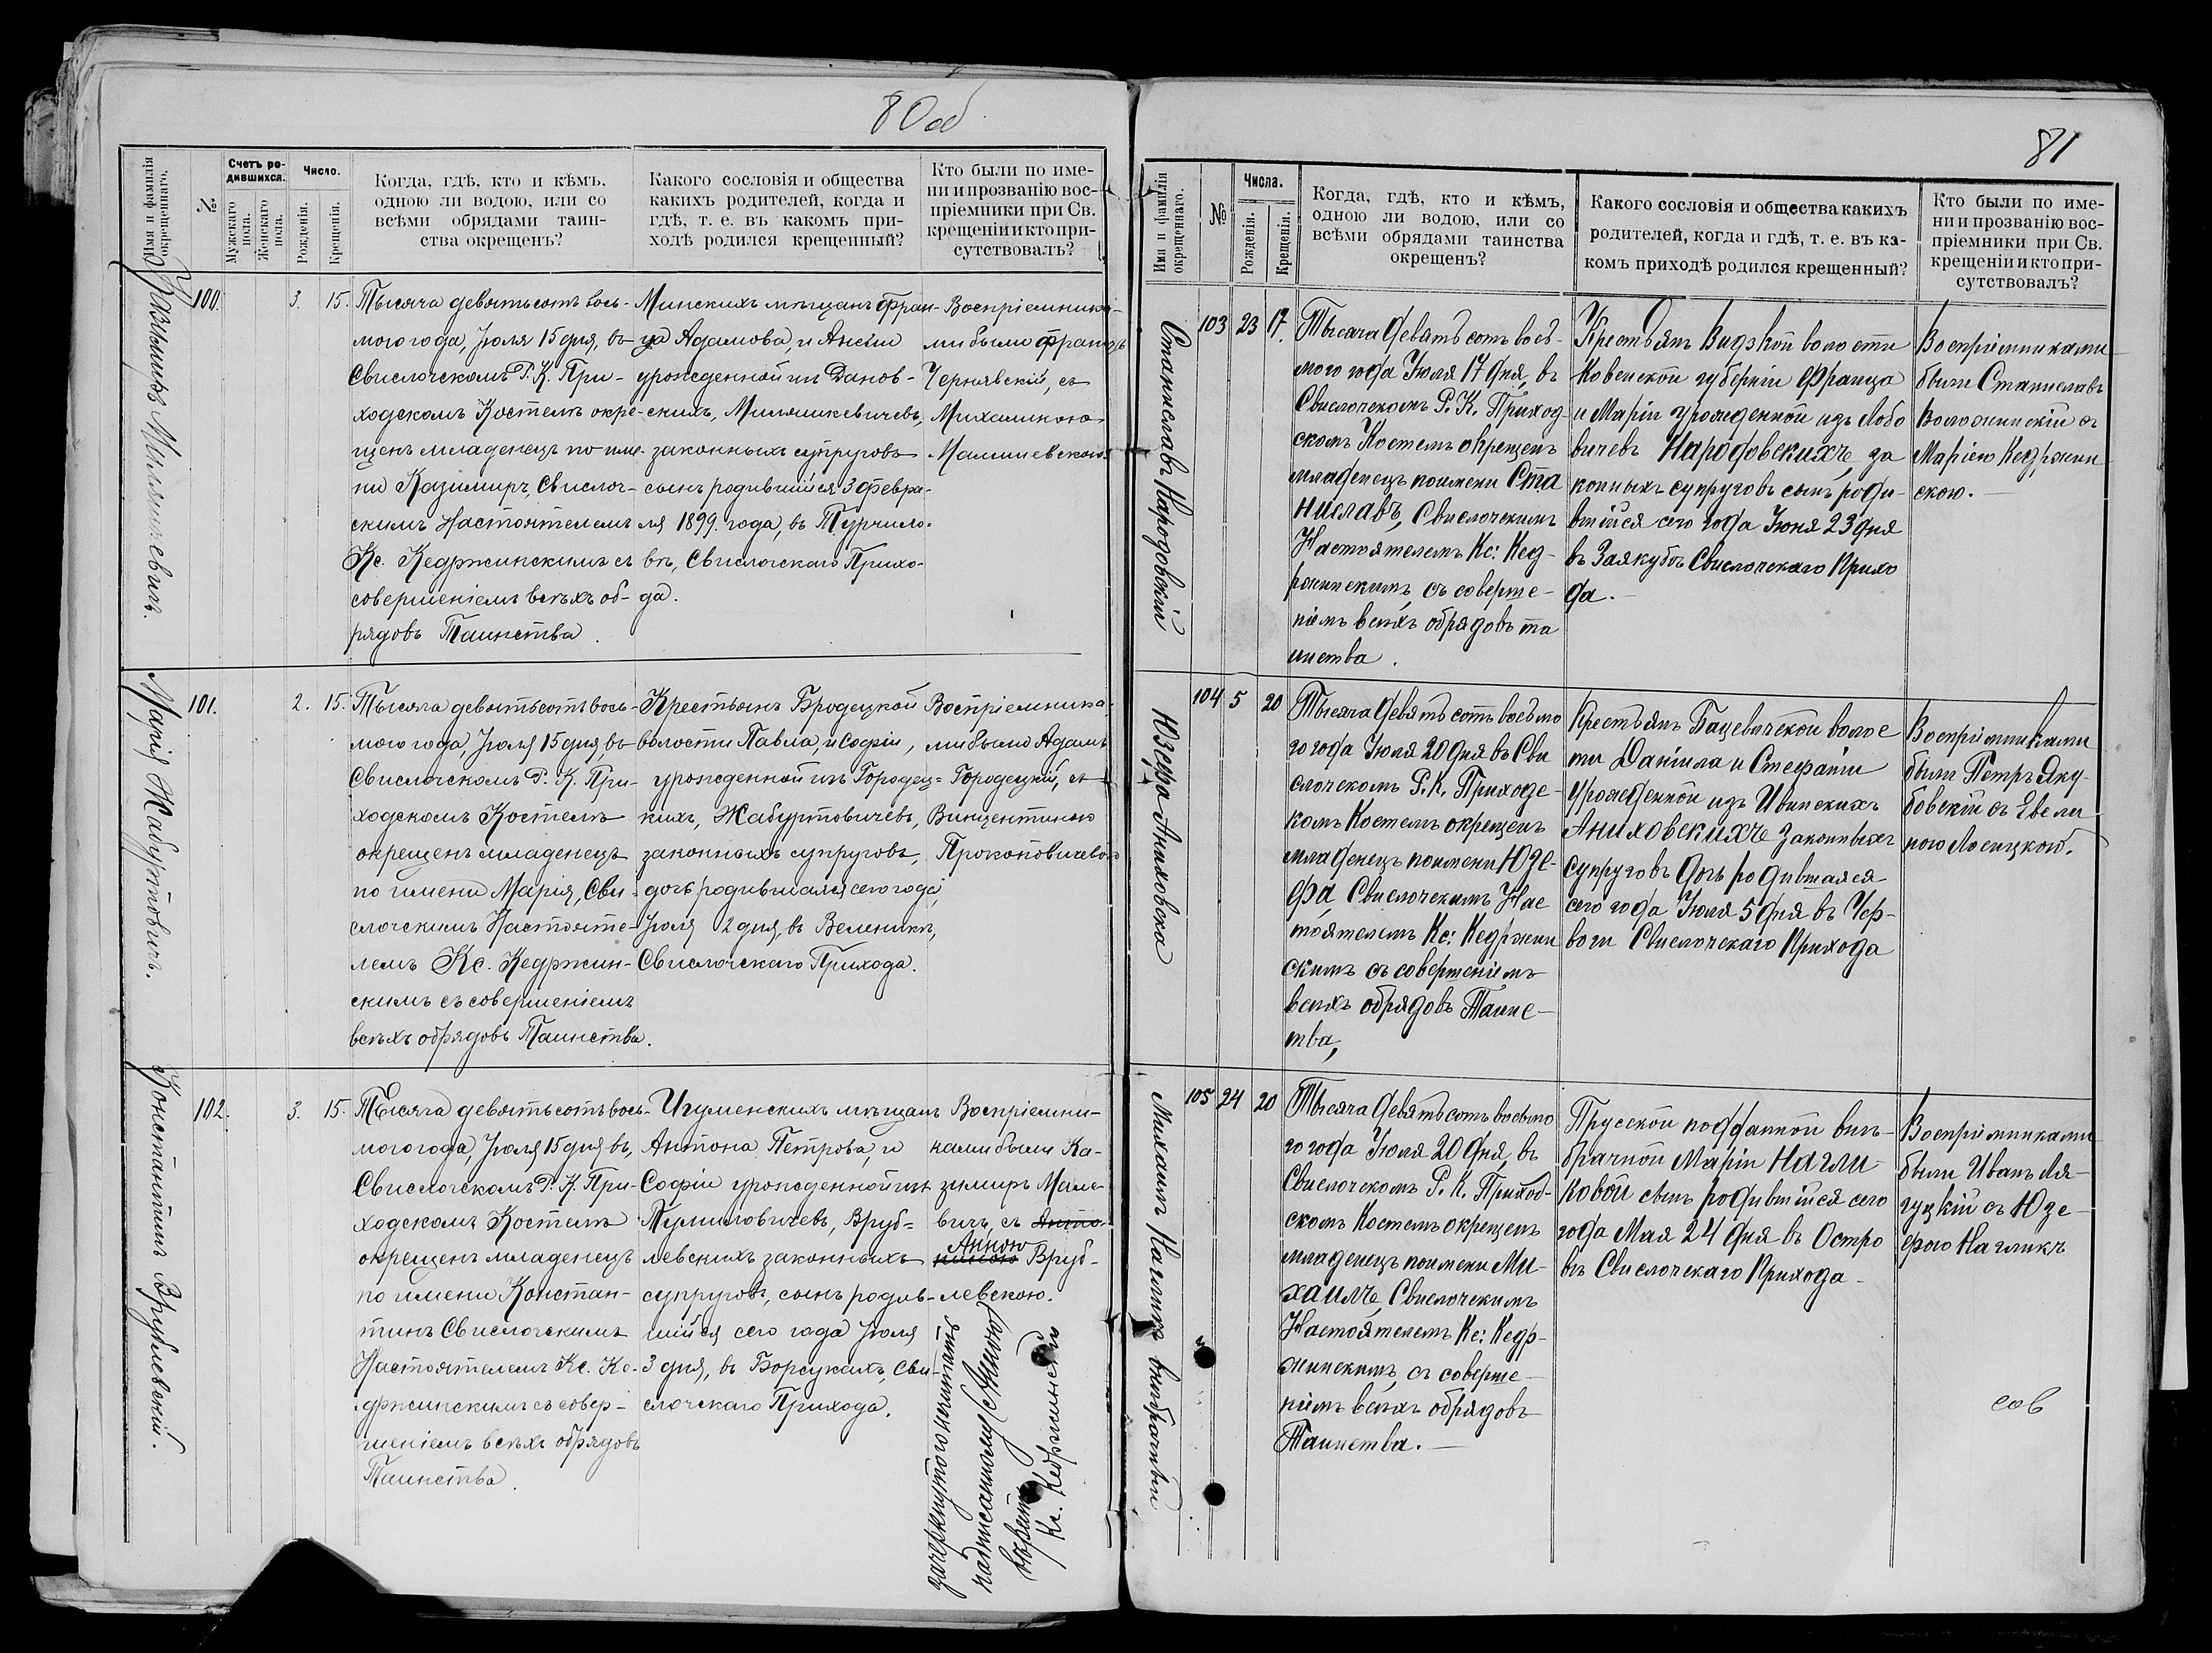 80 об
Имя и фамилія
окрещеннаго.
№
Счетъ ро-
дившихся.
Мужскаго
пола.
Женскаго
пола.
Число.
Рожденія.
Крещенія.
Когда, гдѣ, кто и кѣмъ,
одною ли водою, или со
всѣми обрядами таин-
ства окрещенъ?
Какого сословія и общества
какихъ родителей, когда и
гдѣ, т. е. въ какомъ при-
ходѣ родился крещенный?
Кто были по име-
ни и прозванію вос-
пріемники при Св.
крещеніи и кто при-
сутствовалъ?
Казиміръ Миляшкевичъ.
100.
3.
15.
Тысяча девятьсотъ вось-
мого года, Іюля 15 дня, въ
Свислочскомъ Р. К. При-
ходскомъ Костелѣ окре-
щенъ младенецъ по име-
ни Казимиръ, Свислоч-
скимъ Настоятелемъ
Кс. Кедржинскимъ съ
совершеніемъ всѣхъ об-
рядовъ Таинства.
Минскихъ мѣщанъ Фран-
ца Адамова, и Анеліи
урожденной изъ Данов-
скихъ, Миляшкевичевъ,
законныхъ супруговъ
сынъ родившійся 3 февра-
ля 1899 года, въ Турчило-
вѣ, Свислочскаго Прихо-
да.
Воспріемника-
ми были Францъ
Чернявскій, съ
Михалиною
Малишевскою
Марія Жабуртовичъ.
101.
2.
15.
Тысяча девятьсотъ вось-
мого года, Іюля 15 дня, въ
Свислочскомъ Р. К. При-
ходскомъ Костелѣ
окрещенъ младенецъ
по имени Марія, Сви-
слочскимъ Настояте-
лемъ Кс. Кедржин-
скимъ съ совершеніемъ
всѣхъ обрядовъ Таинства.
Крестьянъ Бродецкой
волости Павла, и Софіи,
урожденной изъ Городец-
кихъ, Жабуртовичевъ,
законныхъ супруговъ,
дочь родившаяся сего года,
Іюля 2 дня, въ Веленикѣ,
Свислочскаго Прихода.
Воспріемника-
ми были Адамъ
Городецкій, съ
Винцентиною
Прокоповичевою
Константинъ Врублевскій.
102.
3.
15.
Тысяча девятьсотъ вось-
мого года, Іюля 15 дня въ,
Свислочскомъ Р. К. При-
ходскомъ Костелѣ
окрещенъ младенецъ
по имени Констан-
тинъ Свислочскимъ
Настоятелемъ Кс. Ке-
држинскимъ съ совер-
шеніемъ всѣхъ обрядовъ
Таинства.
Игуменскихъ мѣщанъ
Антона Петрова, и
Софіи урожденной изъ
Шумиловичевъ, Вруб-
левскихъ законныхъ
супруговъ, сынъ родив-
шійся сего года Іюля
3 дня, въ Борсукахъ, Сви-
слочскаго Прихода.
Воспріемни-
ками были Ка-
зимиръ Мале-
вичъ, съ Анто-
Анною
ниною Вруб-
левскою.
зачеркнутого нечитать
надписанному (Анною)
вѣрить
Кс. Кедржинскій
81
Имя и фамилія
окрещеннаго.
№
Числа.
Рожденія.
Крещенія.
Когда, гдѣ, кто и кѣмъ,
одною ли водою, или со
всѣми обрядами таинства
окрещенъ?
Какого сословія и общества какихъ
родителей, когда и гдѣ, т. е. въ ка-
комъ приходѣ родился крещенный?
Кто были по име-
ни и прозванію вос-
пріемники при Св.
крещеніи и кто при-
сутствовалъ?
Станиславъ Народовскій
103
23
17.
Тысяча девятьсотъ вось-
мого года Іюля 17 дня, въ
Свислочскомъ Р. К. Приход-
скомъ Костелѣ окрещенъ
младенецъ по имени Ста
ниславъ, Свислочскимъ
Настоятелемъ Кс: Кед-
ржинскимъ, съ соверше-
ніемъ всѣхъ обрядовъ та
инства.
Крестьянъ Видзкой волости
Ковенской губерніи Франца
и Маріи урожденной изъ Лобо
вичевъ Народовскихъ, за
конныхъ супруговъ сынъ роди-
вшійся сего года Іюня 23 дня
въ Заякубѣ Свислочскаго Прихо
да.
Воспріемниками
были Станиславъ
Воложинскій съ
Маріею Кедржин
скою.
Юзефа Аниховска
104
5
20
Тысяча девятьсотъ восьмо
го года Іюля 20 дня въ Сви
слочскомъ Р. К. Приходс-
комъ Костелѣ окрещенъ
младенецъ по имени Юзе-
фа, Свислочскимъ Нас
тоятелемъ Кс: Кедржин
скимъ съ совершеніемъ
всѣхъ обрядовъ Таинс-
тва,
Крестьянъ Бацевичской волос
ти Даніила и Стефаніи
Урожденной изъ Ивинскихъ
Аниховскихъ законныхъ
супруговъ дочь родившаяся
сего года Іюля 5 дня въ Чер-
воги Свислочскаго Прихода
Воспріемниками
были Петръ Яку-
бовскій съ Эвели
ною Лосицкой.
Михаилъ Нагликъ внѣбрачный
105
24
20
Тысяча девятьсотъ восьмо
го года Іюля 20 дня, въ
Свислочскомъ Р. К. Приход-
скомъ Костелѣ окрещенъ
младенецъ по имени Ми-
хаилъ, Свислочскимъ
Настоятелемъ Кс: Кедр-
жинскимъ, съ соверше-
ніемъ всѣхъ обрядовъ
Таинства.
Прусской подданной внѣ-
брачной Маріи Нагли-
ковой сынъ родившійся сего
года Мая 24 дня въ Остро
вѣ Свислочскаго Прихода
Воспріемниками
были Иванъ Ля-
гуцкій съ Юзе-
фою Нагликъ
сов